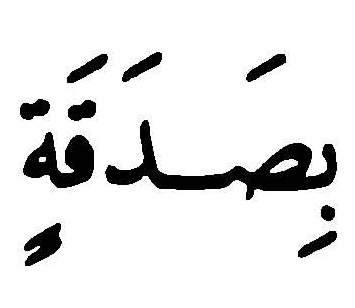 بِصَدَقَةٍ